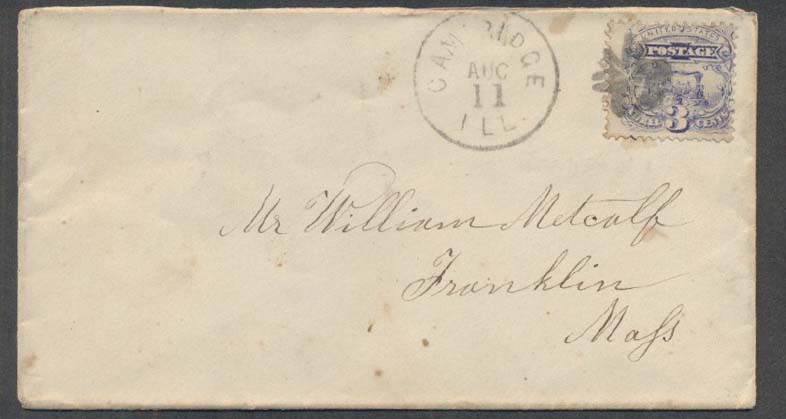 CAMBRIDGE
AUG
11
ILL.
UNITED STATES
POSTAGE
3
Mr William Metcalf
Franklin
Mass